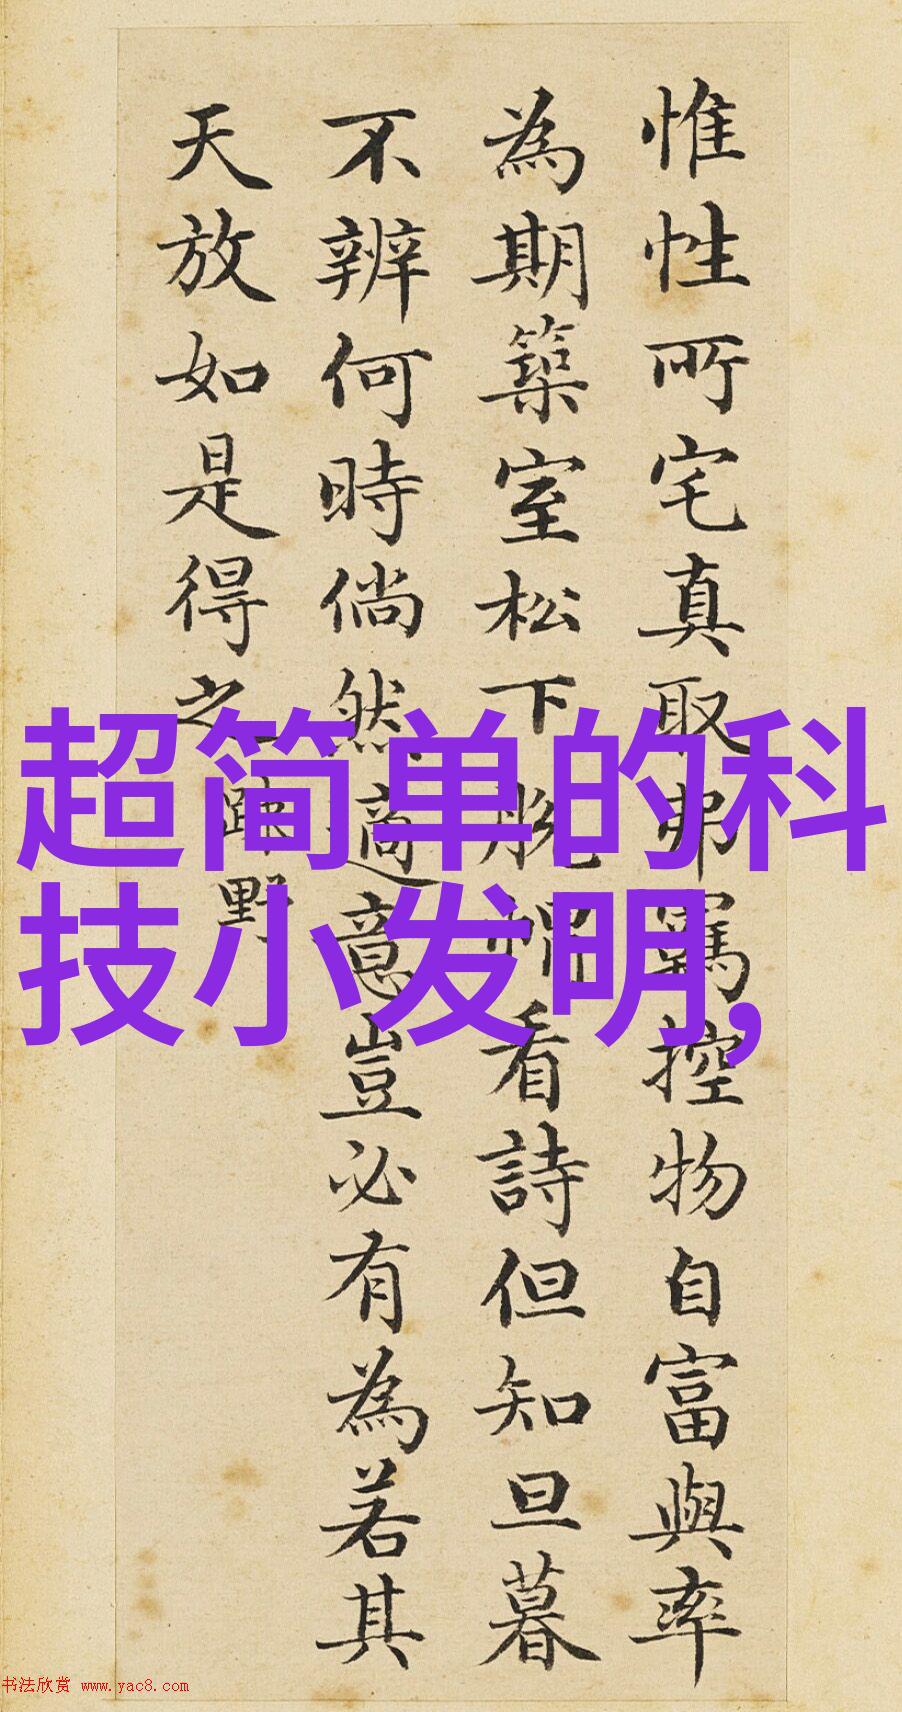 惟性所宅真取弗羈控物自富與率
為期築室松下脫帽看詩但知旦暮
不辨何時倘然適意豈必有為若其
天放如是得之疎野
超简单的科
技小发明,
书法欣赏 www.yac8.com